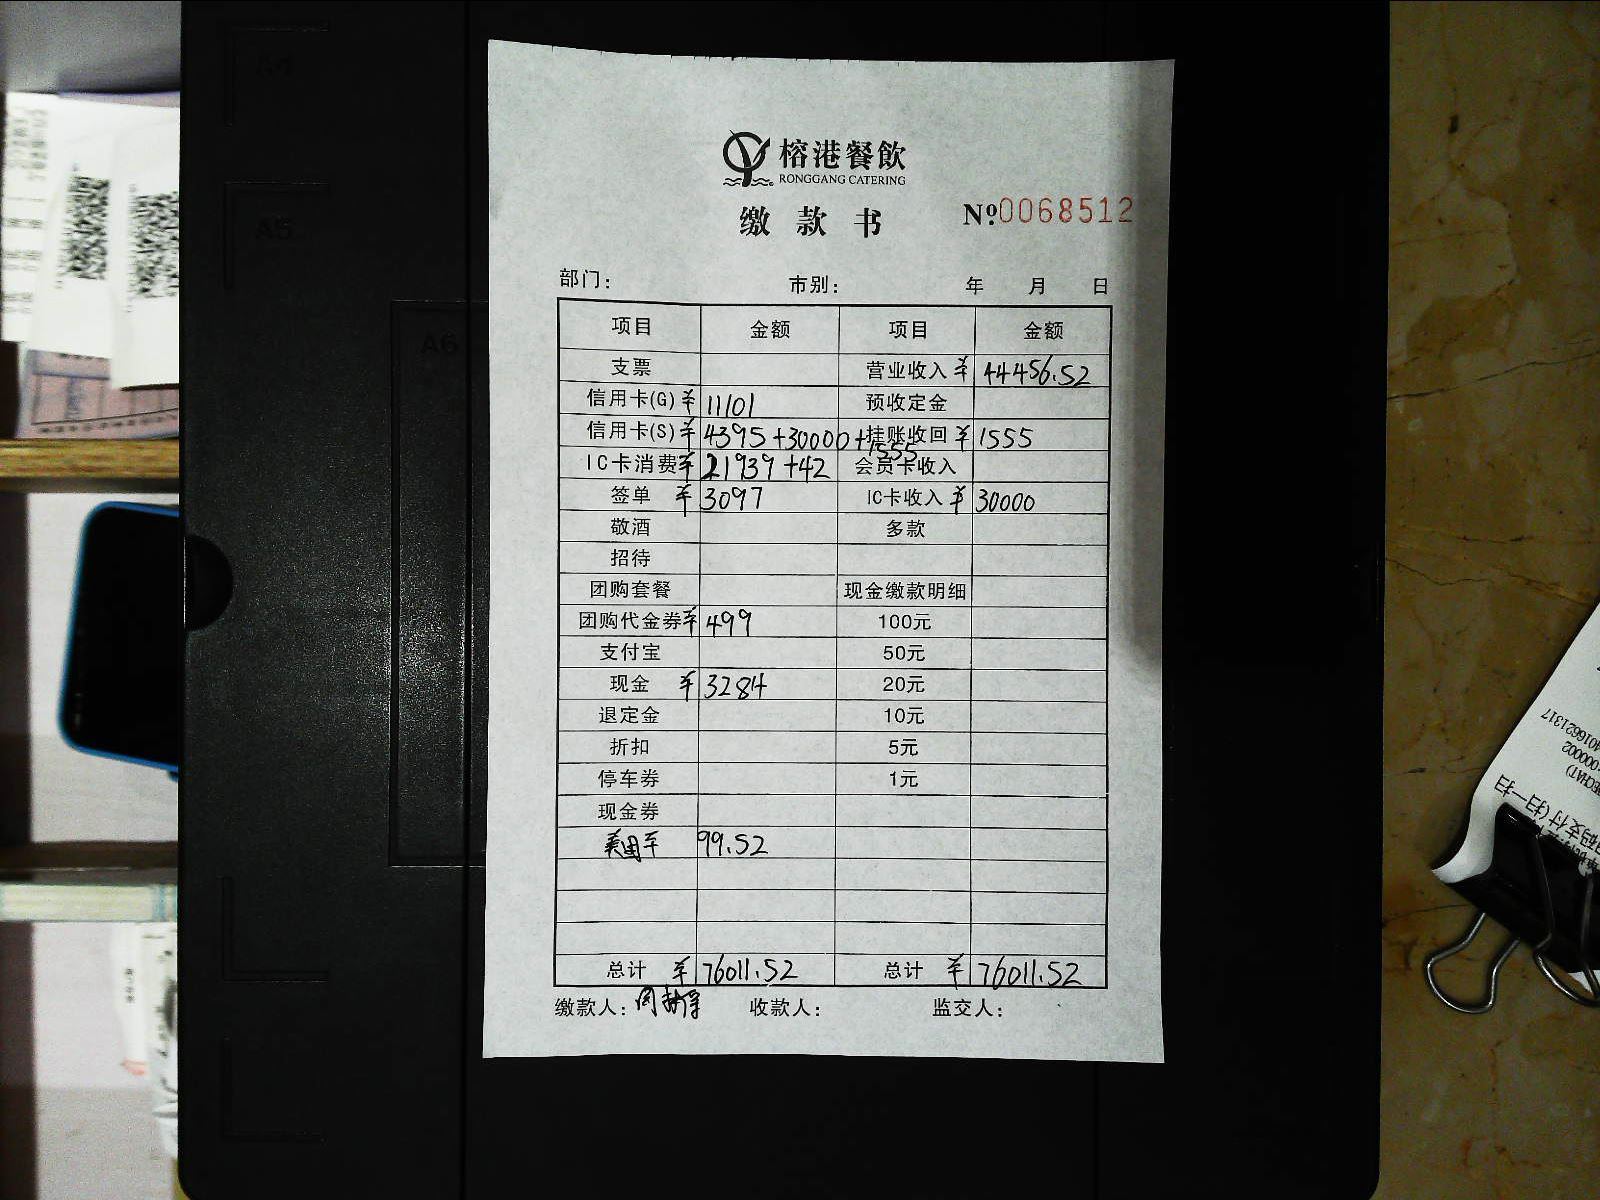 榕港餐飲
RONGGANG CATERING
缴款书
№0068512
部门： 市别： 年 月 日
项目 金额 项目 金额
支票 营业收入 ¥ 44456.52
信用卡(G) ¥ 11101 预收定金
信用卡(S) ¥ 4395+30000+1555 挂账收回 ¥ 1555
IC卡消费 ¥ 21939+42 会员卡收入
签单 ¥ 3097 IC卡收入 ¥ 30000
敬酒 多款
招待
团购套餐 现金缴款明细
团购代金券 ¥ 499 100元
支付宝 50元
现金 ¥ 3284 20元
退定金 10元
折扣 5元
停车券 1元
现金券
美团 ¥ 99.52
总计 ¥ 76011.52 总计 ¥ 76011.52
缴款人： 收款人： 监交人：
A4
A5
A6